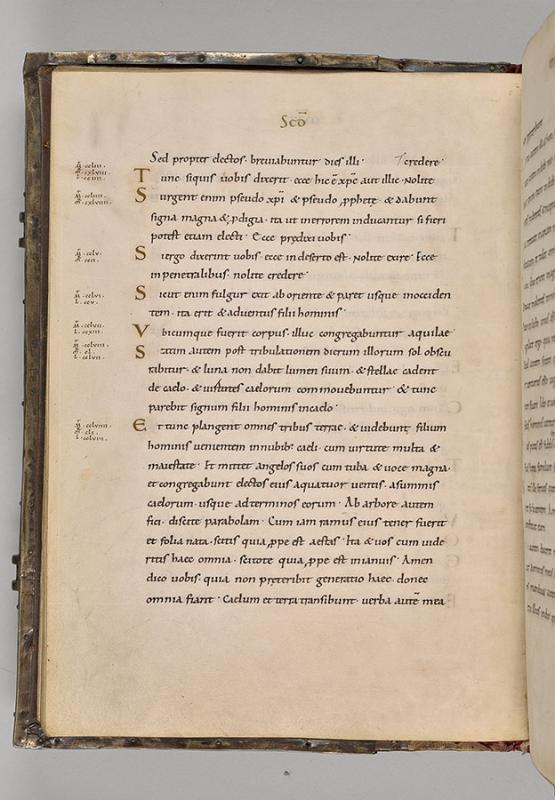 Scd̄
Sed propter electos· breviabuntur dies illi· credere·
Tunc siquis uobis dixerit· ecce hic ē xp̄c aut illic· Nolite
Surgent enim pseudo xp̄i & pseudo ꝓphetę· & dabunt
signa magna & ꝓdigia· ita ut inerrorem inducantur si fieri
potest etiam electi· Ecce prędixi uobis·
Si ergo dixerint uobis· ecce in deserto est· Nolite exire· Ecce
inpenetralibus· nolite credere·
Sicut enim fulgur exit ab oriente & paret usque inocciden
tem· ita erit & aduentus filii hominis·
Vbicumque fuerit corpus· illuc congregabuntur aquilae·
Statim autem post tribulationem dierum illorum sol obscu
rabitur· & luna non dabit lumen suum· & stellae cadent
de caelo· & uirtutes caelorum commouebuntur· & tunc
parebit signum filii hominis incaelo·
Et tunc plangent omnes tribus terrae· & uidebunt filium
hominis uenientem innubib; caeli· cum uirtute multa &
maiestate· Et mittet angelos suos cum tuba & uoce magna·
et congregabunt electos eius aquatuor uentis· asummis
caelorum· usque adterminos eorum· Ab arbore autem
fici· discite parabolam· Cum iam ramus eius tener fuerit
et folia nata· scitis quia ꝓpe est aestas· Ita & uos cum uide
ritis haec omnia· scitote quia ꝓpe est inianuis· Amen
dico uobis· quia non pręteribit generatio haec· donec
omnia fiant· Caelum et terra transibunt· uerba autē mea